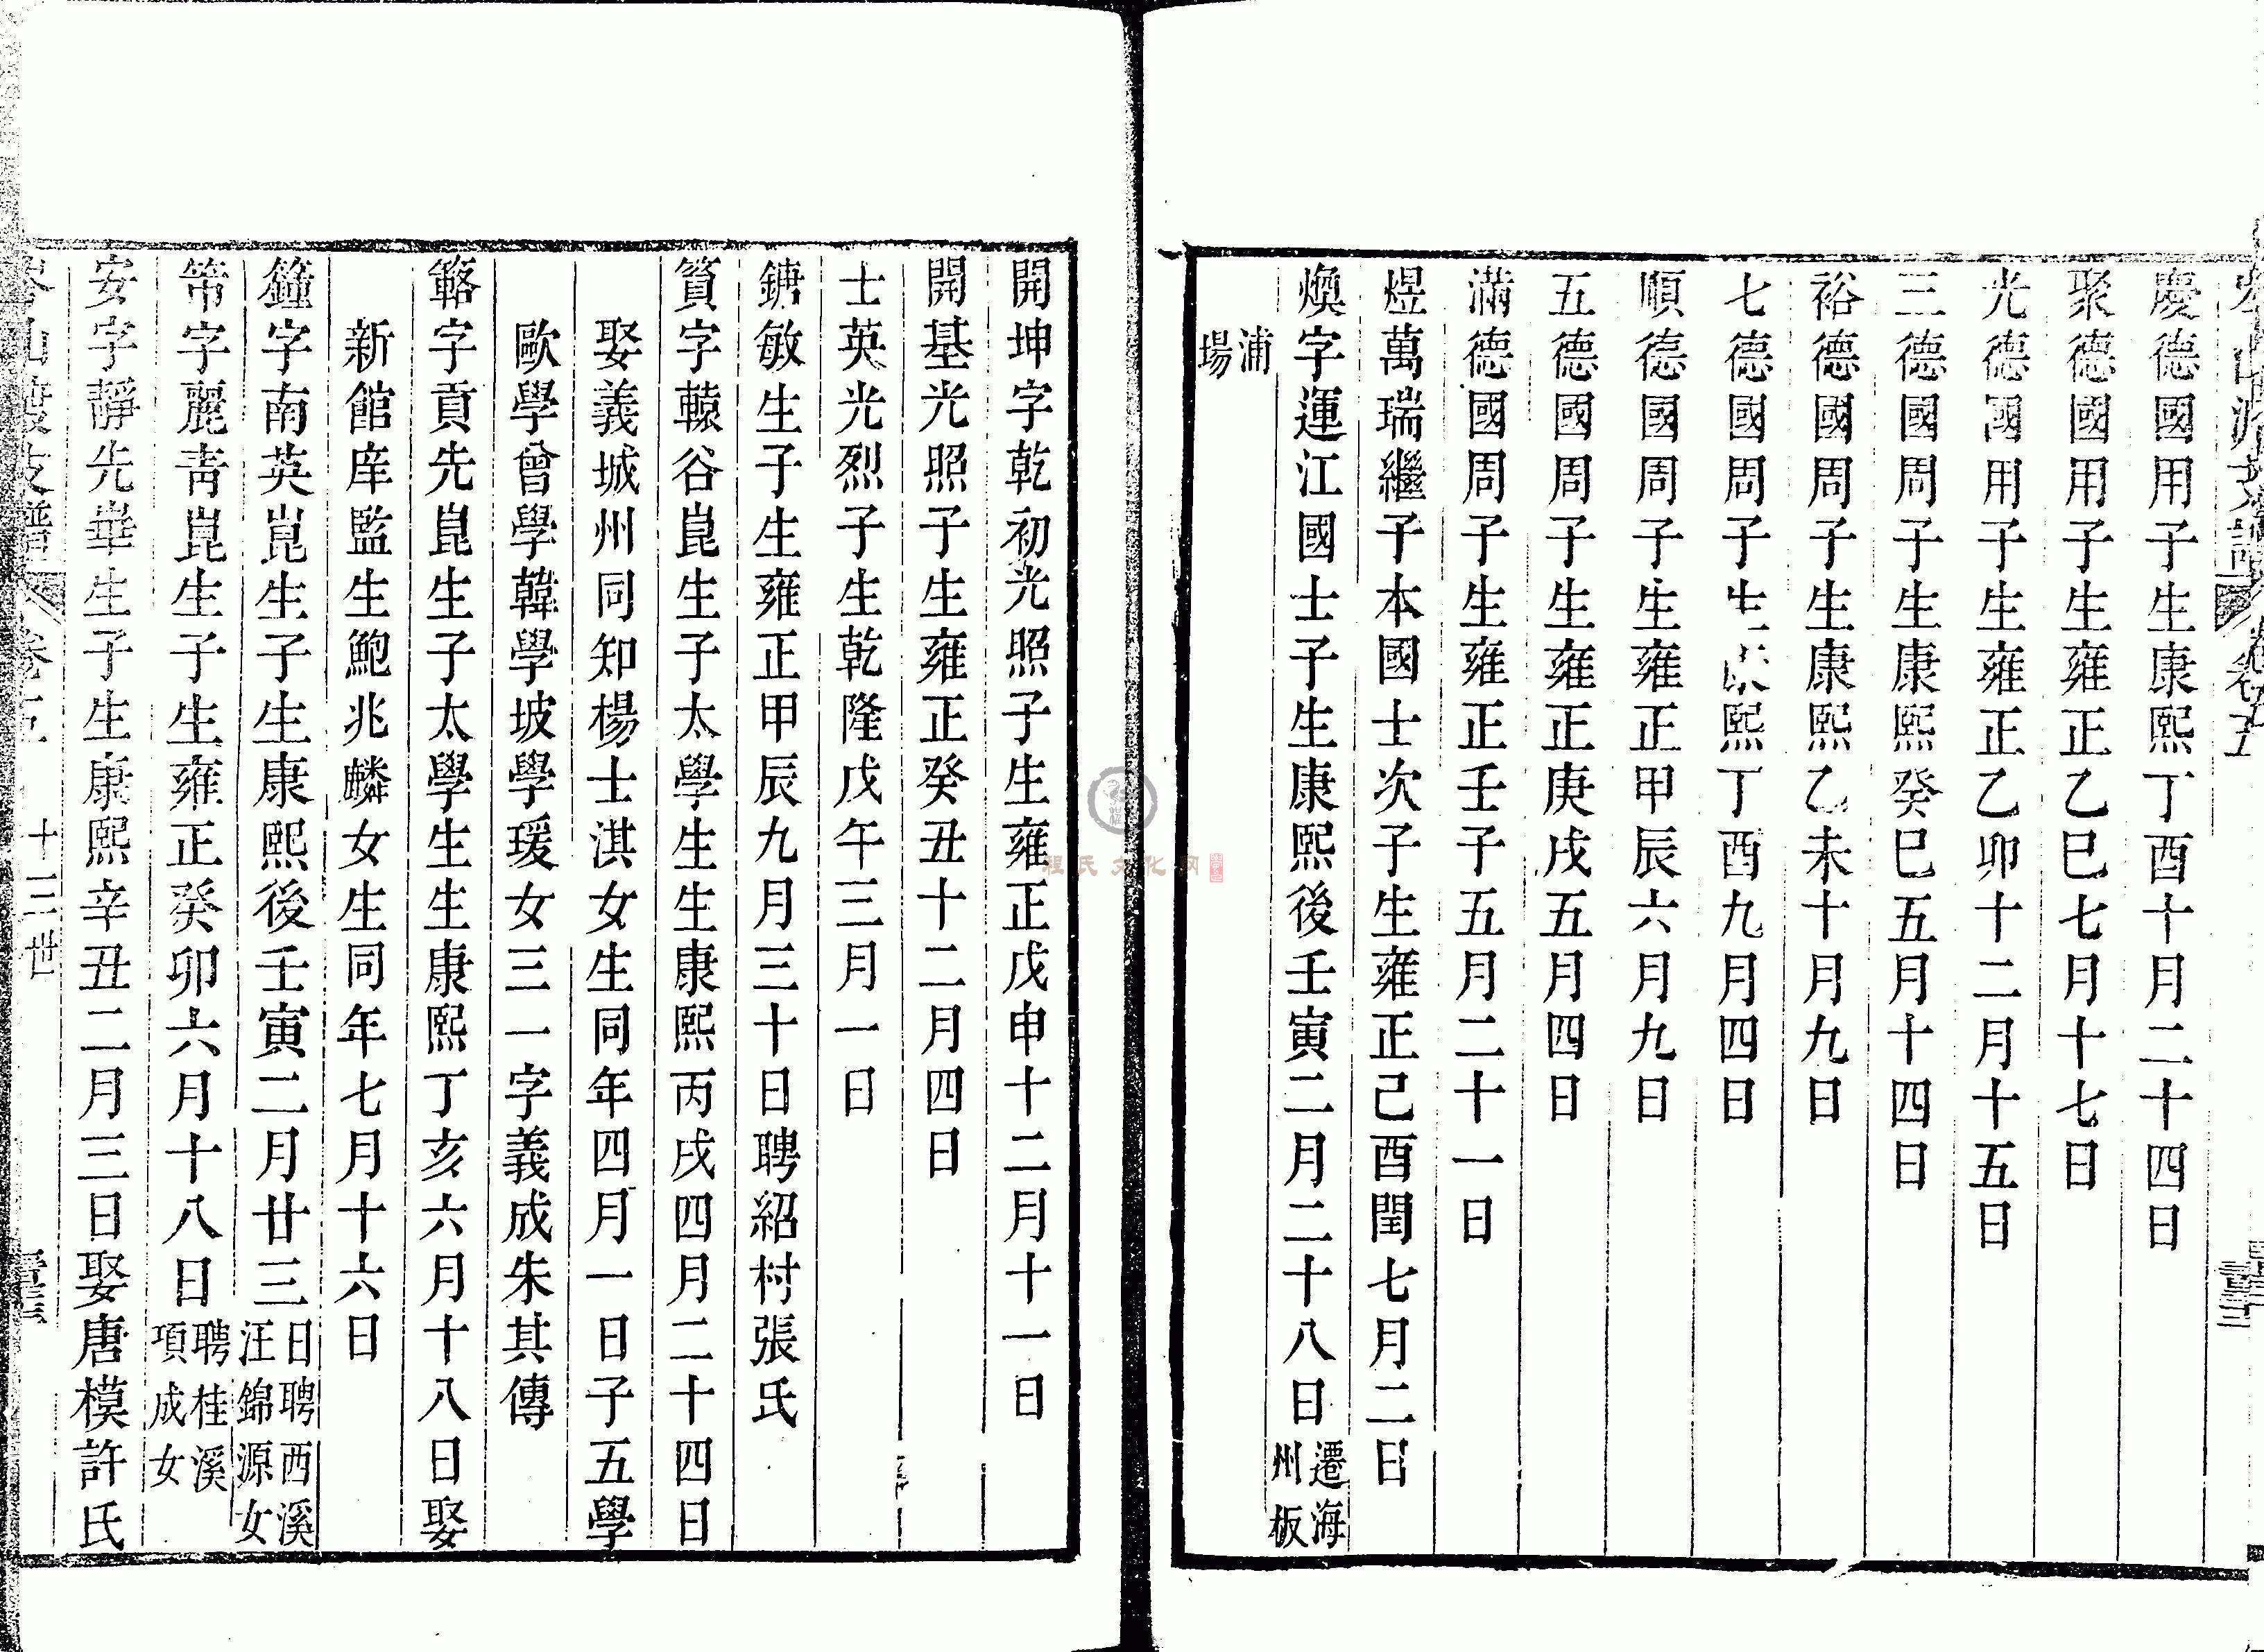 慶德國用子生康熙丁酉十月二十四日
聚德國用子生雍正乙巳七月十七日
光德國用子生雍正乙卯十二月十五日
三德國周子生康熙癸巳五月十四日
裕德國周子生康熙乙未十月九日
七德國周子生康熙丁酉九月四日
順德國周子生雍正甲辰六月九日
五德國周子生雍正庚戌五月四日
滿德國周子生雍正壬子五月二十一日
煜萬瑞繼子本國士次子生雍正己酉閏七月二日
煥字運江國士子生康熙後壬寅二月二十八日遷海州板
浦場
開坤字乾初光照子生雍正戊申十二月十一日
開基光照子生雍正癸丑十二月四日
士英光烈子生乾隆戊午三月一日
鏞敏生子生雍正甲辰九月三十日聘紹村張氏
篔字轅谷崑生子太學生生康熙丙戌四月二十四日
娶義城州同知楊士淇女生同年四月一日子五學
歐學曾學韓學坡學瑗女三一字義成朱其傳
簵字貢先崑生子太學生生康熙丁亥六月十八日娶
新館庠監生鮑兆麟女生同年七月十六日
籦字南英崑生子生康熙後壬寅二月廿三日聘西溪汪錦源女
字麗青崑生子生雍正癸卯六月十八日聘桂溪項成女
安字靜先崋生子生康熙辛丑二月三日娶唐模許氏
支譜 卷五 十三世
程氏文化网